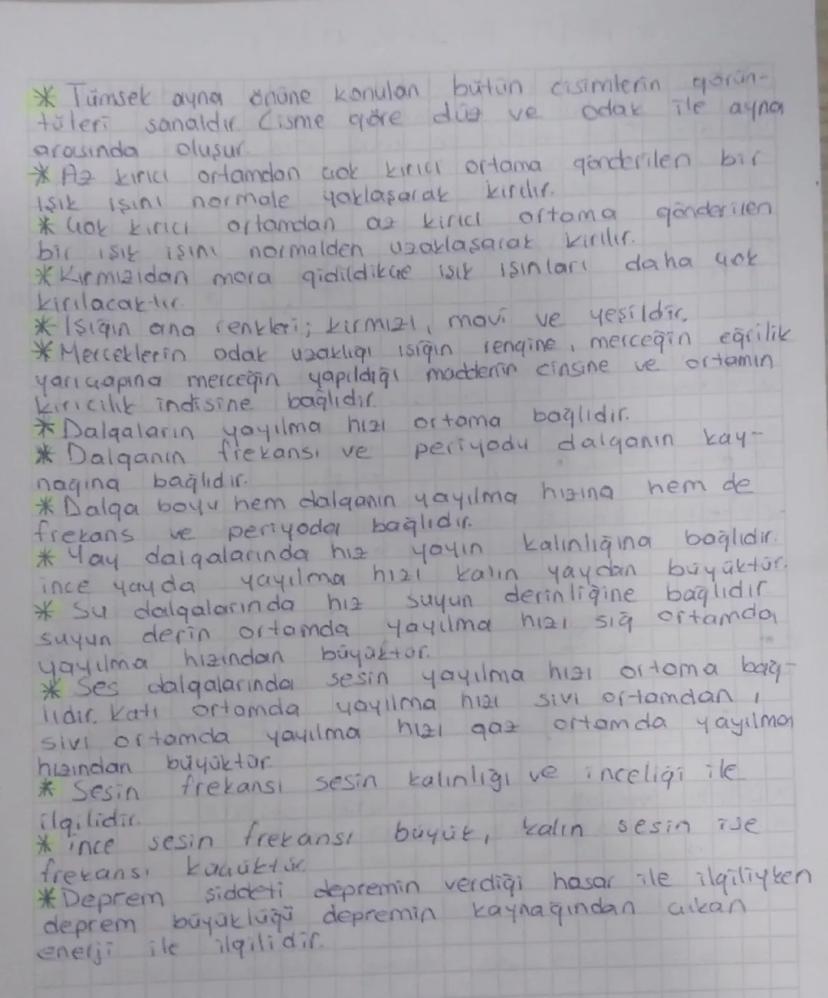 * Tümsek ayna önüne konulan bütün cisimlerin görün-
tüleri sanaldır Cisme göre düz ve odak ile ayna
arasında oluşur.
* Az kırıcı ortamdan çok kırıcı ortama gönderilen bir
ışık ışını normale yaklaşarak kırılır.
* Çok kırıcı ortamdan az kırıcı ortama gönderilen
bir ışık ışını normalden uzaklaşarak kırılır.
* Kırmızıdan mora gidildikçe ışık ışınları daha çok
kırılacaktır.
* Işığın ana renkleri; kırmızı, mavi ve yeşildir.
* Merceklerin odak uzaklığı ışığın rengine, merceğin eğrilik
yarıçapına merceğin yapıldığı maddenin cinsine ve ortamın
kırıcılık indisine bağlıdır.
* Dalgaların yayılma hızı ortama bağlıdır.
* Dalganın frekansı ve periyodu dalganın kay-
nağına bağlıdır.
* Dalga boyu hem dalganın yayılma hızına hem de
frekans ve periyoda bağlıdır.
* Yay dalgalarında hız yayın kalınlığına bağlıdır.
ince yayda yayılma hızı kalın yaydan büyüktür.
* Su dalgalarında hız suyun derinliğine bağlıdır
suyun derin ortamda yayılma hızı sığ ortamda
yayılma hızından büyüktür.
* Ses dalgalarında sesin yayılma hızı ortama bağ-
lıdır. Katı ortamda yayılma hızı sıvı ortamdan,
sıvı ortamda yayılma hızı gaz ortamda yayılma
hızından büyüktür.
* Sesin frekansı sesin kalınlığı ve inceliği ile
ilgilidir.
* ince sesin frekansı büyük, kalın sesin ise
frekansı küçüktür.
* Deprem şiddeti depremin verdiği hasar ile ilgiliyken
deprem büyüklüğü depremin kaynağından çıkan
enerji ile ilgilidir.